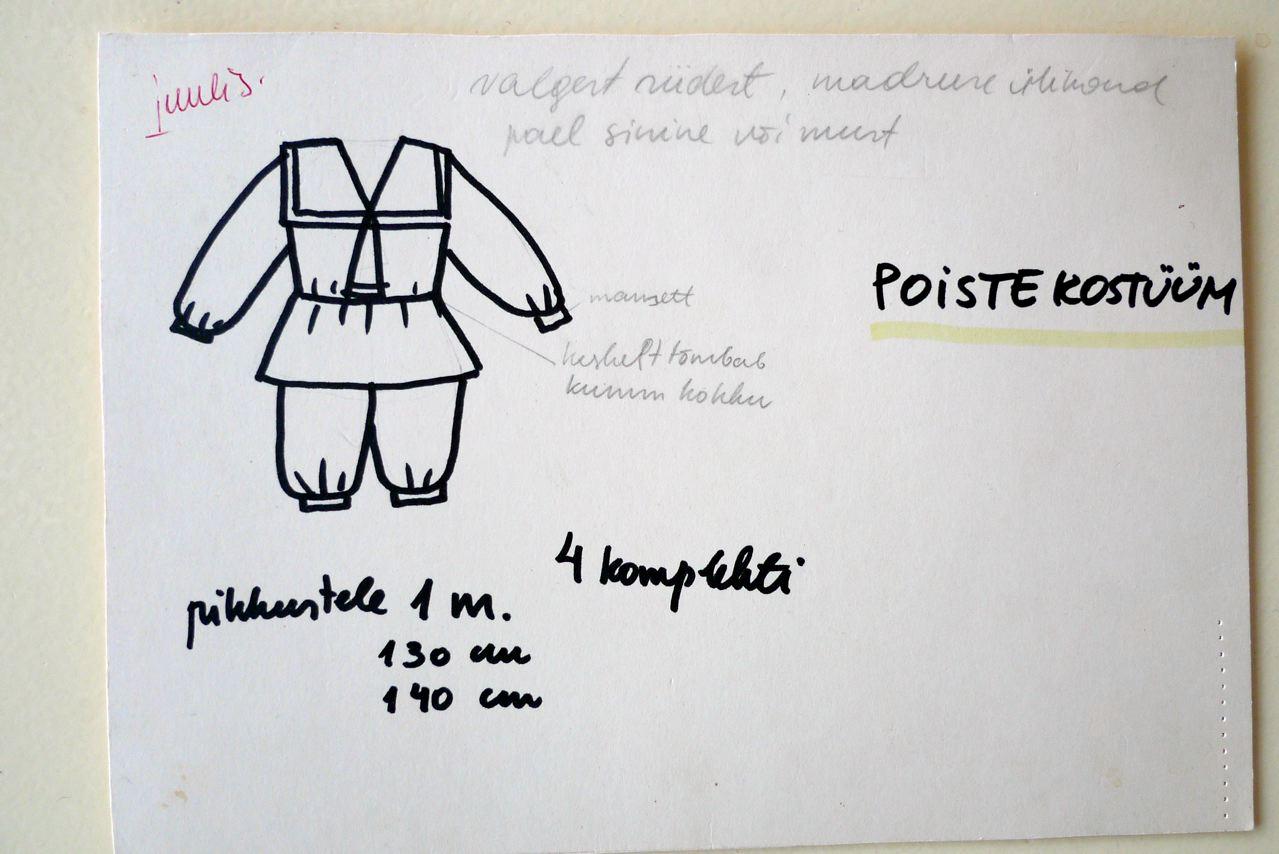 juulis.
valgest riidest, madruse ülikond
pael sinine või must
POISTE KOSTÜÜM
mansett
keskelt tõmbab
kumm kokku
4 komplekti
pikkustele 1 m.
130 cm
140 cm